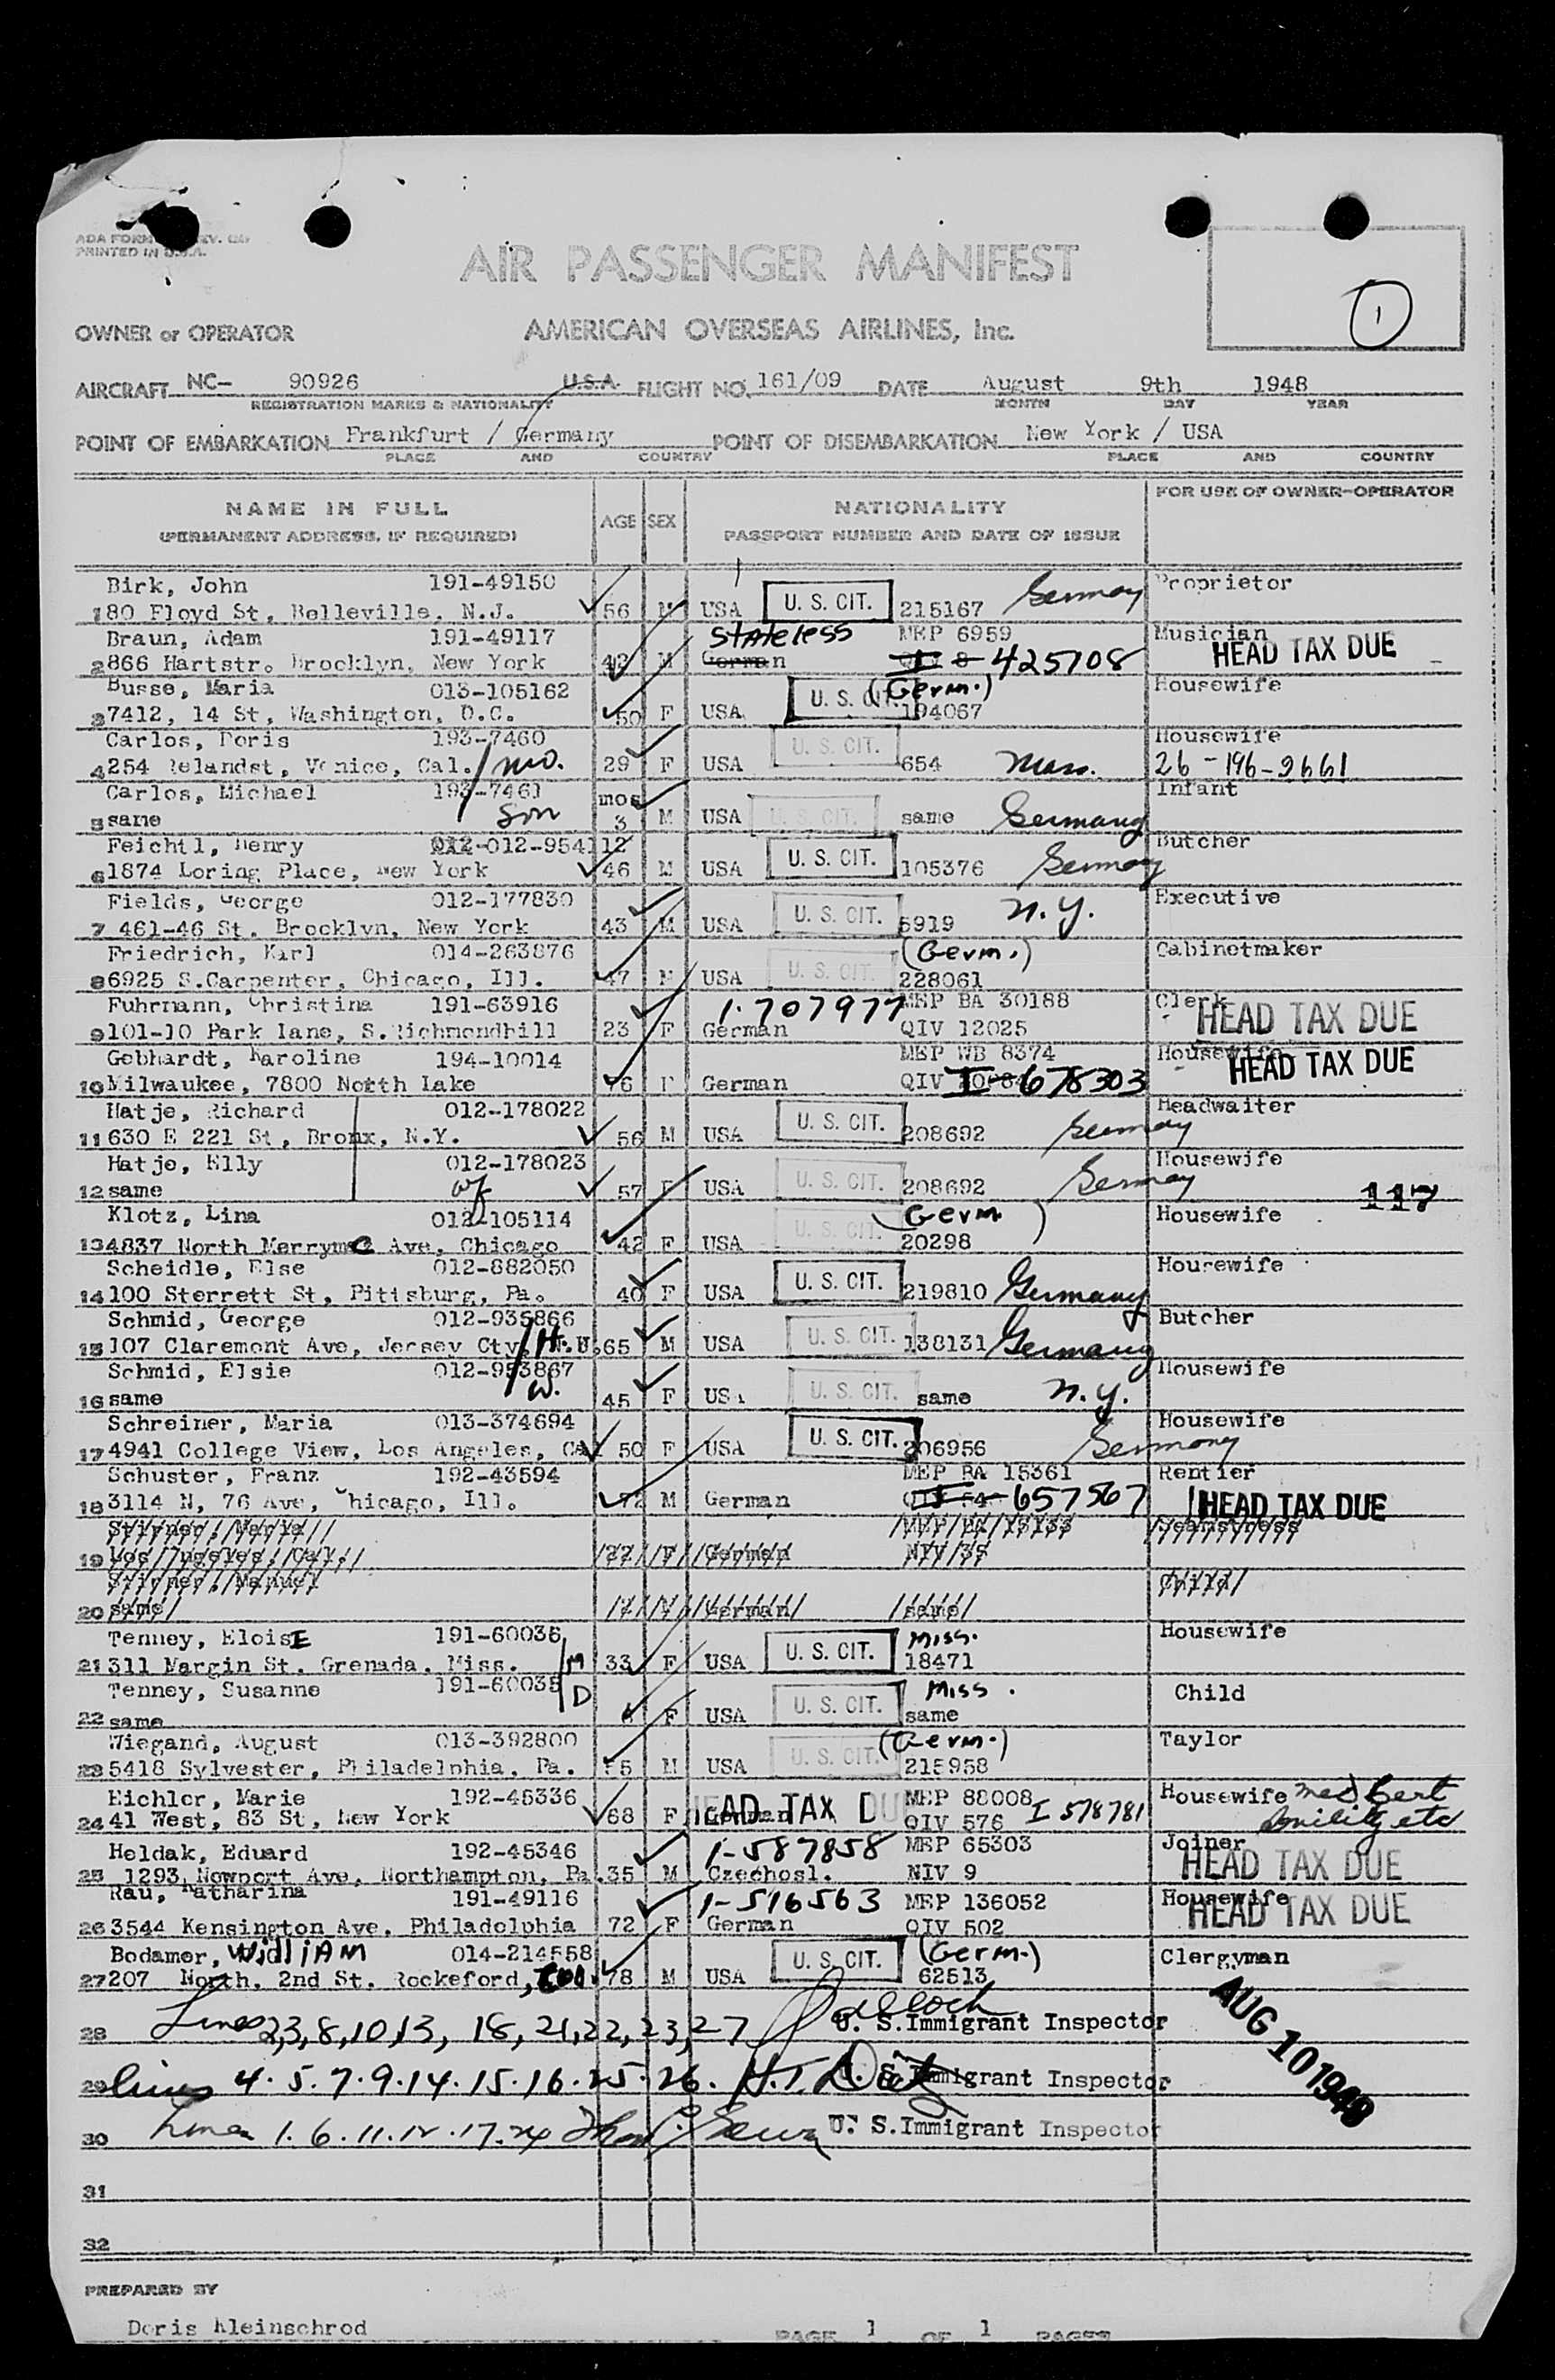 ADA FORM REV.
PRINTED IN U.S.A.
AIR PASSENGER MANIFEST
1
OWNER or OPERATOR AMERICAN OVERSEAS AIRLINES, Inc.
AIRCRAFT NC- 90926 U.S.A. FLIGHT NO. 161/09 DATE August 9th 1948
REGISTRATION MARKS & NATIONALITY MONTH DAY YEAR
POINT OF EMBARKATION Frankfurt / Germany POINT OF DISEMBARKATION New York / USA
PLACE AND COUNTRY PLACE AND COUNTRY
NAME IN FULL AGE SEX NATIONALITY FOR USE OF OWNER-OPERATOR
(PERMANENT ADDRESS, IF REQUIRED) PASSPORT NUMBER AND DATE OF ISSUE
Birk, John 191-49150 Germany Proprietor
1 80 Floyd St, Belleville, N.J. 56 M USA U. S. CIT. 215167
Braun, Adam 191-49117 Stateless MEP 6959 Musician
2 866 Hartstr. Brocklyn, New York 42 M German 425708 HEAD TAX DUE
Busse, Maria 013-105162 (Germ.) Housewife
3 7412, 14 St, Washington, D.C. 50 F USA U. S. CIT. 194067
Carlos, Doris 193-7460 Housewife
4 254 Relandst, Venice, Cal. mo. 29 F USA U. S. CIT. 654 Mass. 26-196-2661
Carlos, Michael 193-7461 mos Infant
5 same Son 3 M USA U. S. CIT. same Germany
Feichtl, Henry 012-012-954112 Butcher
6 1874 Loring Place, New York 46 M USA U. S. CIT. 105376 Germany
Fields, George 012-177830 N.Y. Executive
7 461-46 St. Brocklyn, New York 43 M USA U. S. CIT. 5919
Friedrich, Karl 014-263876 (Germ.) Cabinetmaker
8 6925 S.Carpenter, Chicago, Ill. 47 M USA U. S. CIT. 228061
Fuhrmann, Christina 191-63916 1-707977 MEP BA 30188 Clerk
9 101-10 Park lane, S.Richmondhill 23 F German QIV 12025 HEAD TAX DUE
Gebhardt, Karoline 194-10014 MEP WB 8374 Housewife
10 Milwaukee, 7800 North Lake 76 F German QIV I-678303 HEAD TAX DUE
Hatje, Richard 012-178022 Headwaiter
11 630 E 221 St, Bronx, N.Y. 56 M USA U. S. CIT. 208692 Germany
Hatje, Elly 012-178023 Housewife
12 same wf 57 F USA U. S. CIT. 208692 Germany 117
Klotz, Lina 012-105114 (Germ) Housewife
13 4837 North Merrymac Ave, Chicago 42 F USA U. S. CIT. 20298
Scheidle, Else 012-882050 Housewife
14 100 Sterrett St, Pittsburg, Pa. 40 F USA U. S. CIT. 219810 Germany
Schmid, George 012-935866 Butcher
15 107 Claremont Ave, Jersey Cty, H. 65 M USA U. S. CIT. 138131 Germany
Schmid, Elsie 012-953867 Housewife
16 same W. 45 F USA U. S. CIT. same N.Y.
Schreiner, Maria 013-374694 Housewife
17 4941 College View, Los Angeles, Cal 50 F USA U. S. CIT. 206956 Germany
Schuster, Franz 192-43594 MEP BA 15361 Rentier
18 3114 N, 76 Ave, Chicago, Ill. 72 M German I-657567 HEAD TAX DUE
Stirner, Maria Seamstress
19 Los Angeles, Cal. 22 F German NIV 38
Stirner, Manuel Child
20 same German same
Tenney, EloisE 191-60036 Miss. Housewife
21 311 Margin St. Grenada, Miss. M 33 F USA U. S. CIT. 18471
Tenney, Susanne 191-60035 Miss. Child
22 same D F USA U. S. CIT. same
Wiegand, August 013-392800 (Germ.) Taylor
23 5418 Sylvester, Philadelphia, Pa. 55 M USA U. S. CIT. 215958
Eichler, Marie 192-45336 MEP 88008 Housewife med Cert
24 41 West, 83 St, New York 68 F German HEAD TAX DUE QIV 576 I 578781 Senility etc
Heldak, Eduard 192-45346 1-587858 MEP 65303 Joiner
25 1293, Newport Ave, Northampton, Pa. 35 M Czechosl. NIV 9 HEAD TAX DUE
Rau, Katharina 191-49116 1-516563 MEP 136052 Housewife
26 3544 Kensington Ave, Philadelphia 72 F German QIV 502 HEAD TAX DUE
Bodamer, William 014-214558 (Germ.) Clergyman
27 207 North, 2nd St. Rockeford, 78 M USA U. S. CIT. 62513
28 Lines 2,3,8,10,13, 18,21,22,23,27 U. S.Immigrant Inspector
29 lines 4.5.7.9.14.15.16.25.26. U. S.Immigrant Inspector
30 Lines 1.6.11.12.17.24 U. S.Immigrant Inspector
AUG 10 1948
31
32
PREPARED BY
Doris Kleinschrod PAGE 1 OF 1 PAGES